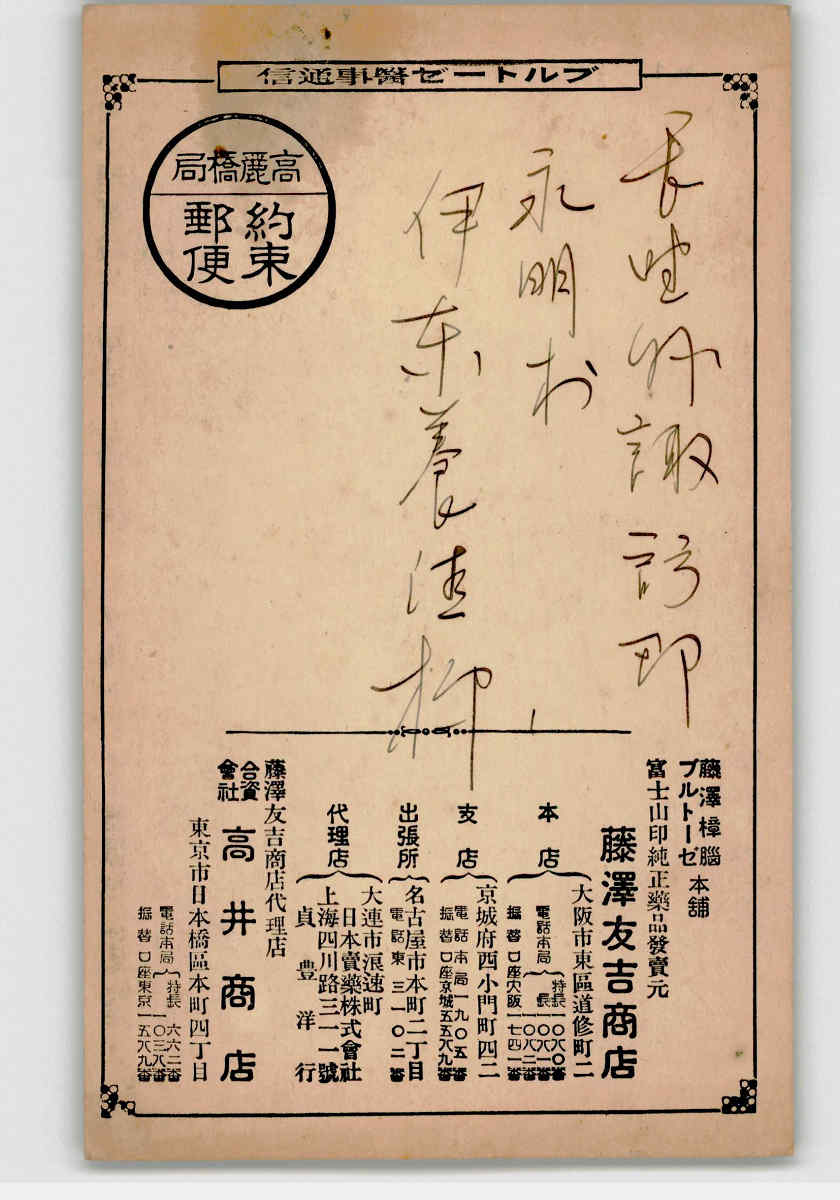 ブルトーゼ醫事通信
高麗橋局
約束
郵便
長野縣諏訪郡
永明村
伊東養
藤澤樟腦
ブルトーゼ
本舗
富士山印純正藥品發賣元
藤澤友吉商店
本店
大阪市東區道修町二
電話本局
特長
長
振替口座大阪一七四一番
支店
京城府西小門町四二
電話本局一九〇五番
振替口座京城
出張所
名古屋市本町二丁目
電話東三一〇二番
代理店
大連市浪速町
日本賣藥株式會社
上海四川路三一一號
貞豊洋行
藤澤友吉商店代理店
合資會社
高井商店
東京市日本橋區本町四丁目
電話本局
特長
六六二番
一〇三八番
振替口座東京